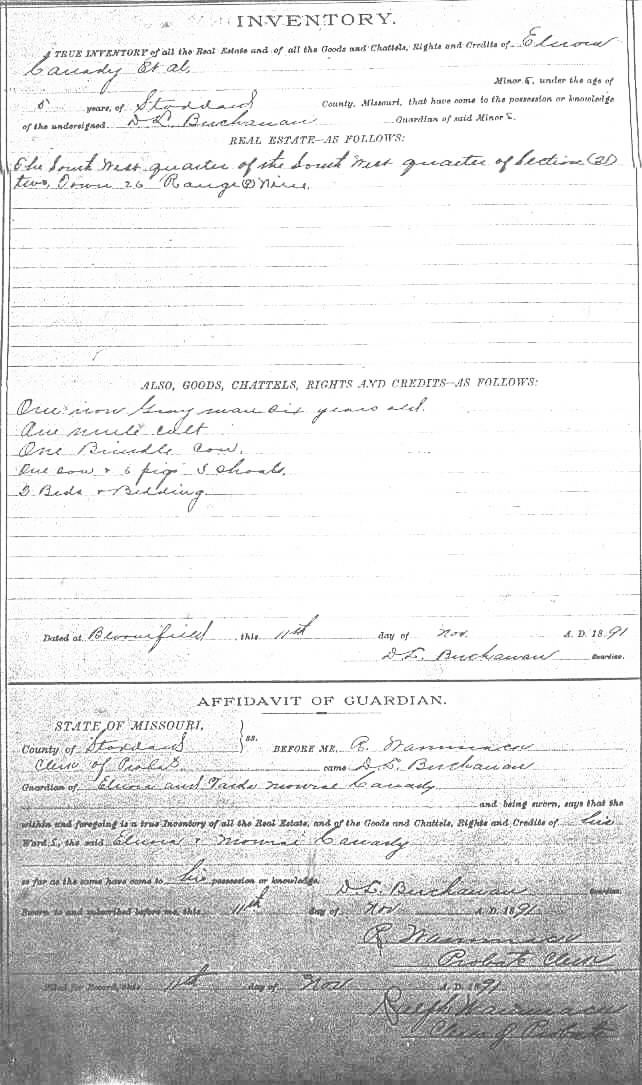 INVENTORY.
A TRUE INVENTORY of all the Real Estate and of all the Goods and Chattels, Rights and Credits of Elnora
Canady Et al,
Minor s, under the age of
years, of Stoddard County, Missouri, that have come to the possession or knowledge
of the undersigned D L. Buchanan Guardian of said Minor s.
REAL ESTATE—AS FOLLOWS:
The South West quarter of the South West quarter of Section (2)
two, Town 26 Range 9 Nine.
ALSO, GOODS, CHATTELS, RIGHTS AND CREDITS—AS FOLLOWS:
One iron Gray mare six years old.
One mule colt
One Brindle Cow.
One sow & 6 pigs 5 shoats.
3 Beds & Bedding
Dated at Bloomfield this 11th day of Nov. A. D. 1891
D L. Buchanan Guardian.
AFFIDAVIT OF GUARDIAN.
STATE OF MISSOURI,
County of Stoddard } ss. BEFORE ME, R. Wammack
Clerk of Probate came D L. Buchanan
Guardian of Elnora and Monroe Canady
and being sworn, says that the
within and foregoing is a true Inventory of all the Real Estate, and of the Goods and Chattels, Rights and Credits of his
Ward s, the said Elnora & Monroe Canady
so far as the same have come to his possession or knowledge. D L. Buchanan Guardian.
Sworn to and subscribed before me, this 11th day of Nov A. D. 1891
R Wammack
Probate Clerk
Filed for Record, this 11th day of Nov A. D. 1891
Ralph Wammack
Clerk of Probate